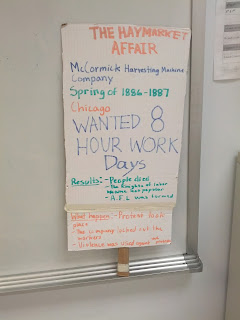 THE HAYMARKET
AFFAIR
McCormick Harvesting Machine
Company
Spring of 1886-1887
Chicago
WANTED 8
HOUR WORK
Days
Results:- People died
- the Knights of labor
became less popular
- A.F.L was formed
What happen:- Protest took
place
- The company locked out the
workers
- Violence was used against